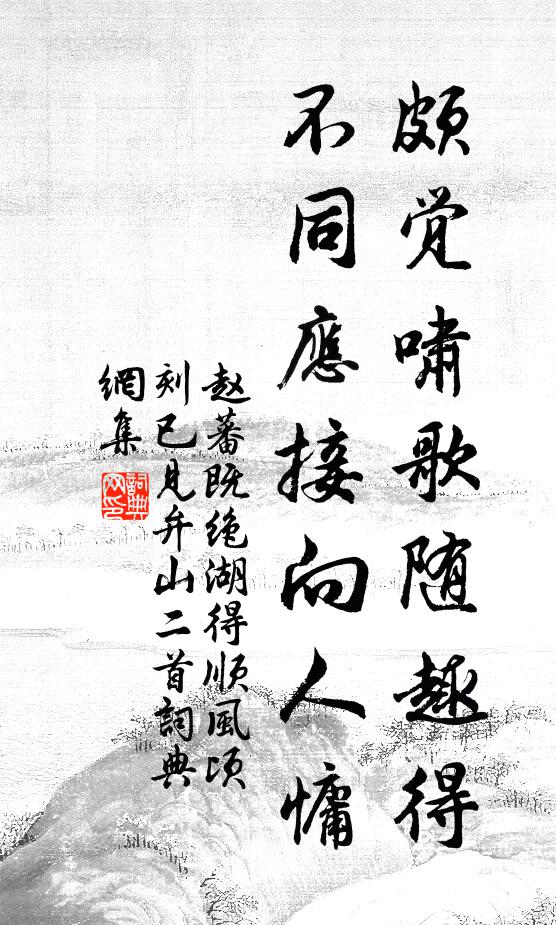 颇觉啸歌随趣得
不同應接向人慵
赵蕃既绝湖得顺風顷
刻已见弁山二首詞典
網集
詞典
网印